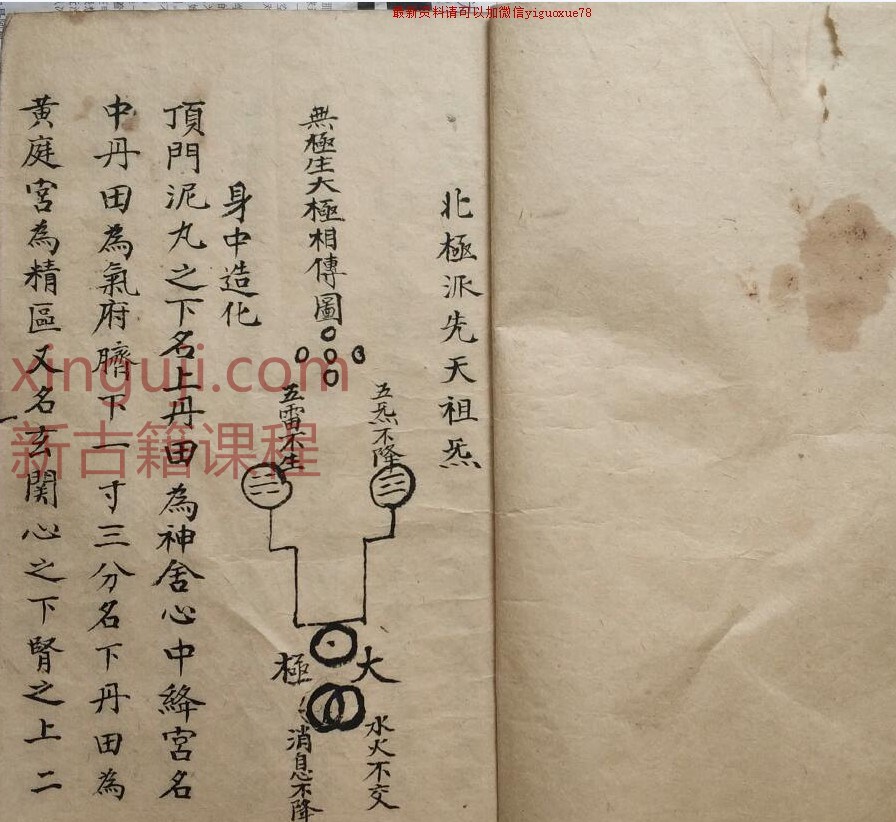 最新资料请可以加微信yiguoxue78
北極派先天祖炁
無極生大極相傳圖
五炁不降
五雷不生
大極
水火不交
消息不降
身中造化
頂門泥丸之下名上丹田為神舍心中絳宮名
中丹田為氣府臍下一寸三分名下丹田為
黃庭宮為精區又名玄関心之下腎之上二
xinguji.com
新古籍课程